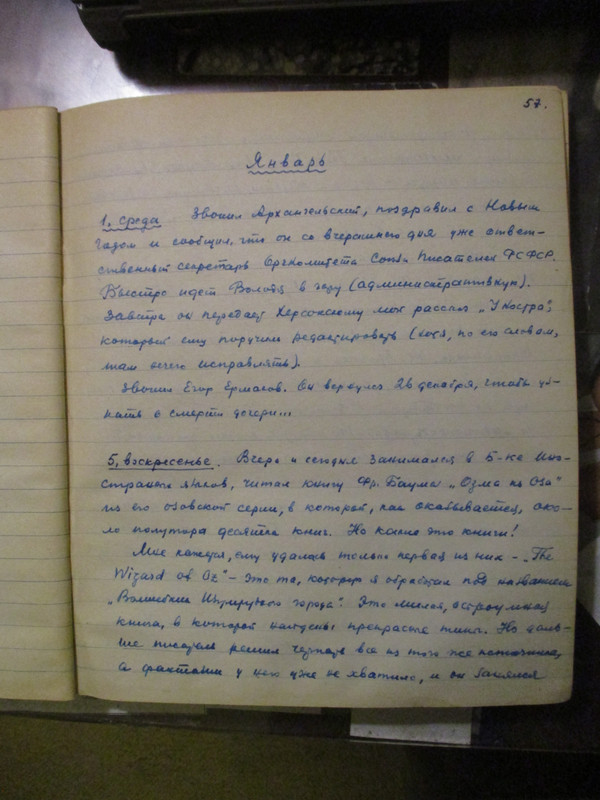 57.
Январь
1, среда Звонил Архангельский, поздравил с Новым
годом и сообщил, что он со вчерашнего дня уже ответ-
ственный секретарь Оргкомитета Союза Писателей РСФСР.
Быстро идет Володя в гору (административную).
Завтра он передаст Херсонскому мой рассказ „У костра",
который ему поручили редактировать (хотя, по его словам,
там нечего исправлять).
Звонил Егор Ермаков. Он вернулся 26 декабря, чтобы уз-
нать о смерти дочери...
5, воскресенье. Вчера и сегодня занимался в Б-ке Ино-
странных языков, читал книгу Фр. Баума „Озма из Оза"
из его озовской серии, в которой, как оказывается, око-
ло полутора десятка книг. Но какие это книги!
Мне кажется, ему удалась только первая из них – „The
Wizard of Oz" – это та, которую я обработал под названием
„Волшебник Изумрудного города". Это милая, остроумная
книга, в которой найдены прекрасные типы. Но даль-
ше писатель решил черпать все из того же источника,
а фантазии у него уже не хватило, и он